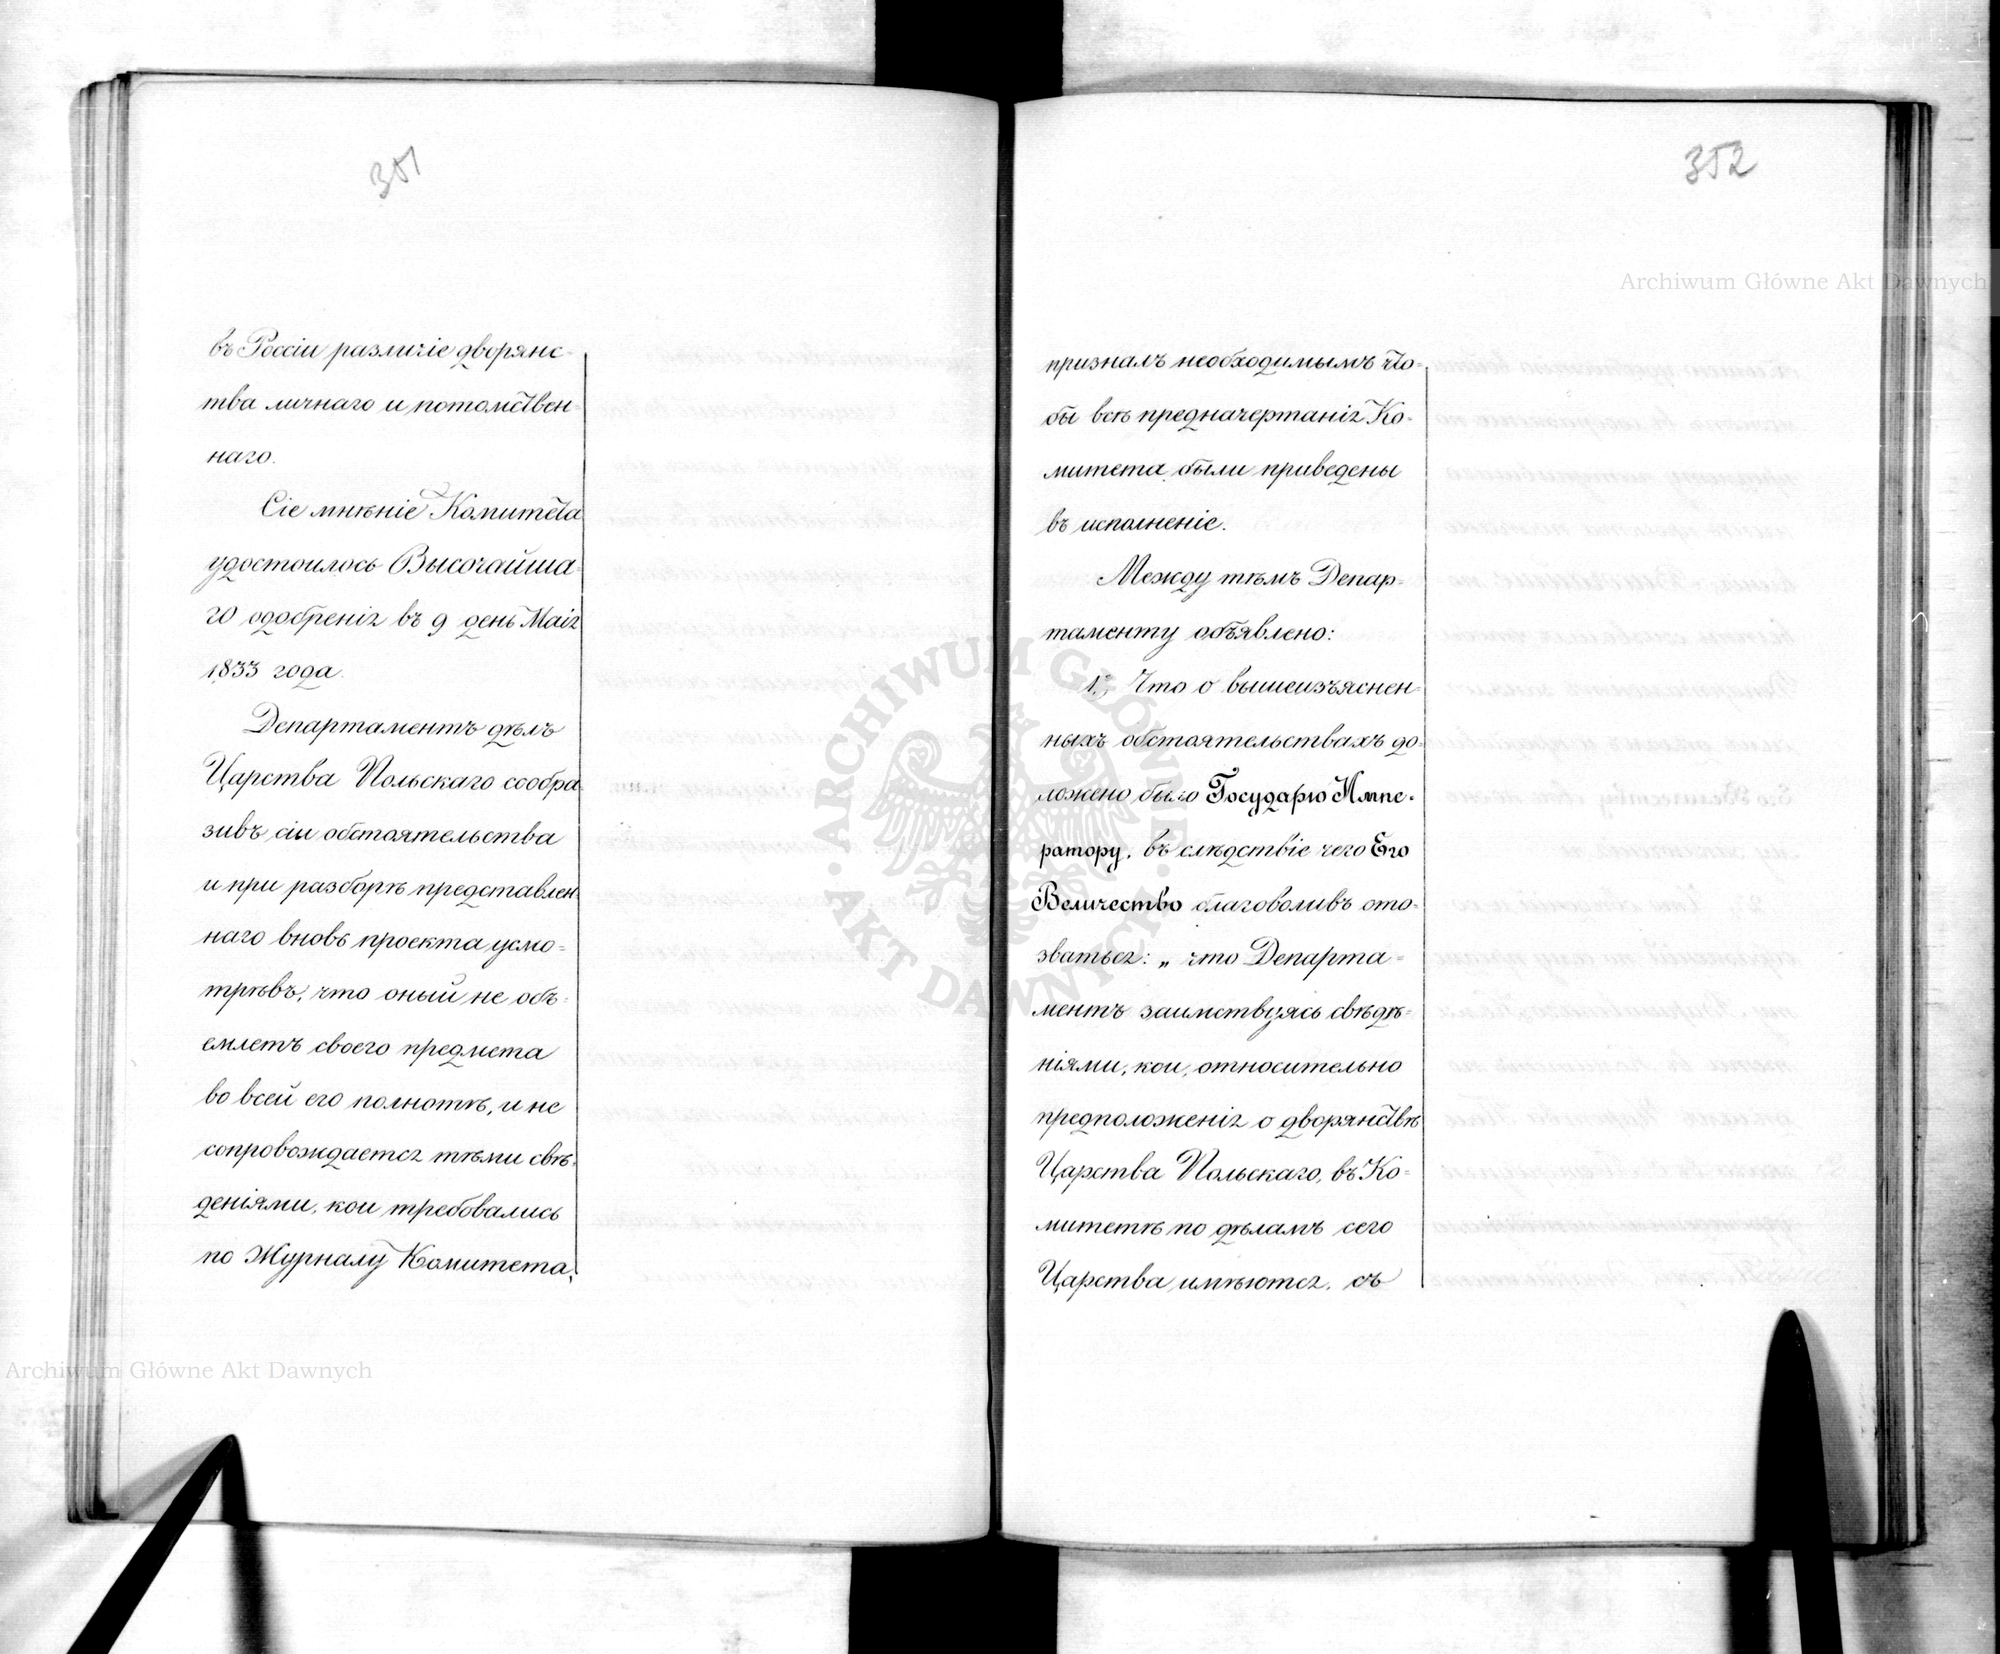 351
въ Россіи различіе дворянс-
тва личнаго и потомствен-
наго.
Сіе мнѣніе Комитета
удостоилось Высочайша-
го одобренія въ 9 день Маія
1833 года.
Департаментъ дѣлъ
Царства Польскаго сообра-
зивъ сіи обстоятельства
и при разборѣ представлен-
наго вновь проекта усмо-
трѣвъ, что оный не объ-
емлетъ своего предмета
во всей его полнотѣ, и не
сопровождается тѣми свѣ-
деніями, кои требовались
по Журналу Комитета,
352
призналъ необходимымъ что-
бы всѣ предначертанія Ко-
митета были приведены
въ исполненіе.
Между тѣмъ Депар-
таменту объявлено:
1.) Что о вышеизъяснен-
ныхъ обстоятельствахъ до-
ложено было Государю Импе-
ратору, въ слѣдствіе чего Его
Величество благоволивъ ото-
зваться: „что Департа-
ментъ заимствуясь свѣдѣ-
ніями, кои, относительно
предположенія о дворянствѣ
Царства Польскаго, въ Ко-
митетѣ по дѣламъ сего
Царства имѣются, съ
Archiwum Główne Akt Dawnych
Archiwum Główne Akt Dawnych
ARCHIWUM GŁÓWNE AKT DAWNYCH